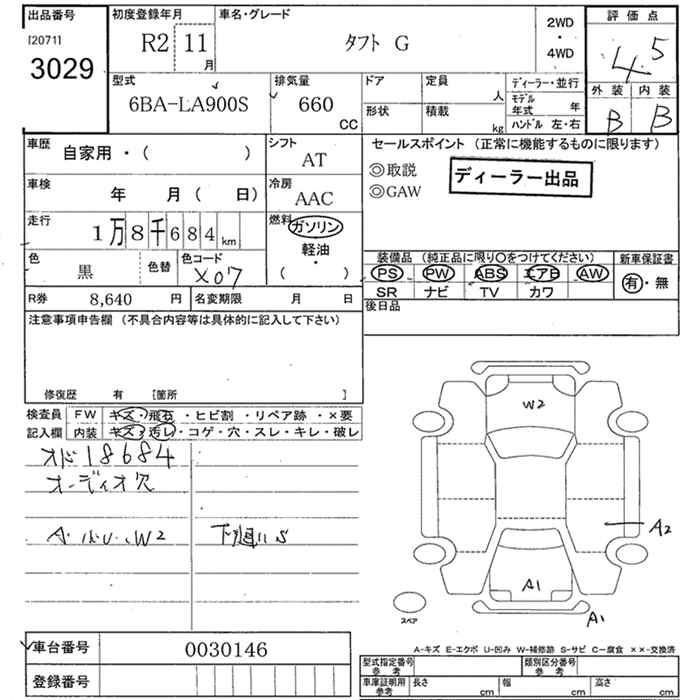 出品番号
[20711
3029
初度登録年月
R2 11月
車名・グレード
タフト G
2WD
・
4WD
評価点
4.5
外装 内装
B B
型式
6BA-LA900S
排気量
660
CC
ドア
形状
定員
人
積載
kg
ディーラー・並行
モデル年式 年
ハンドル 左・右
車歴
自家用・( )
シフト
AT
車検
年 月( 日)
冷房
AAC
走行
1万8千684km
燃料
ガソリン
軽油・
( )
色
黒
色替
色コード
X07
R券 8,640 円
名変期限 月 日
セールスポイント (正常に機能するものに限ります)
◎取説
◎GAW
ディーラー出品
装備品 (純正品に限り○をつけてください)
PS PW ABS エアB AW
SR ナビ TV カワ
新車保証書
有・無
後日品
注意事項申告欄 (不具合内容等は具体的に記入して下さい)
修復歴 有 [箇所 ]
検査員記入欄
FW キズ・飛石・ヒビ割・リペア跡・×要
内装 キズ・汚レ・コゲ・穴・スレ・キレ・破レ
オド18684
オーディオ欠
A W2 下廻りS
W2
A2
A1
A1
スペア
車台番号 0030146
登録番号
A-キズ E-エクボ U-凹み W-補修跡 S-サビ C-腐食 ××-交換済
型式指定番号 参考
類別区分番号 参考
車庫証明用 参考 長さ cm 幅 cm 高さ cm